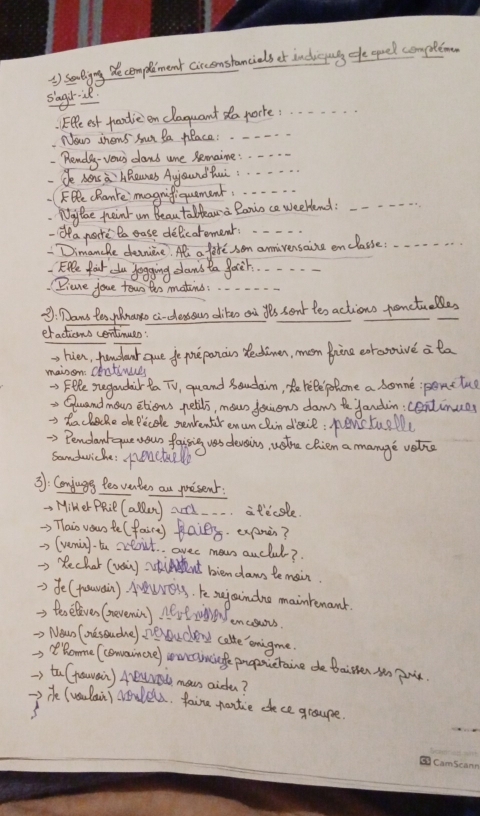 1) Souligne le complément circonstanciels et indiquez de quel complémen
s'agit-il:
- Elle est partie en claquant la porte : - - - - - - -
- Nous irons sur la place: - - - - - -
- Rendez-vous dans une semaine: - - - - -
- Je sors à 4heures Aujourd'hui : - - - - - -
- Elle chante magnifiquement : - - - - - -
- Najlae peint un beau tableau à Paris ce weekend: - - - - - - -
- Il a porté la vase délicatement: - - - - -
- Dimanche dernière. Ali a fêté son anniversaire en classe: - - - - - - -
- Elle fait du jogging dans la forêt: - - - - - -
- Pierre joue tous les matins: - - - - - - -
2): Dans les phrases ci-dessous dites où Ils sont les actions ponctuelles
et actions continues:
→ hier, pendant que je préparais le dîner, mon frère est arrivé à la
maison: continues
→ Elle regardait la TV, quand soudain, le téléphone a sonné: ponctue
→ Quand nous étions petits, nous jouions dans le jardin: continues
→ La cloche de l'école retentit en un clin d'œil: ponctuelle
→ Pendant que vous faisiez vos devoirs, votre chien a mangé votre
sandwiche: ponctuelle
3): Conjuguez les verbes au présent:
→ Mik et Phil (aller) - - - - à l'école.
→ Mais vous le (faire) exprès?
→ (venir)-tu avec nous au club?
→ Le chat (voir) bien dans le noir.
→ Je (pouvoir) te rejoindre maintenant.
→ Les élèves (revenir) en cours.
→ Nous (résoudre) cette énigme.
→ L'homme (convaincre) le propriétaire de baisser ses prix.
→ tu (pouvoir) nous aider?
→ Je (vouloir) faire partie de ce groupe.
CamScann